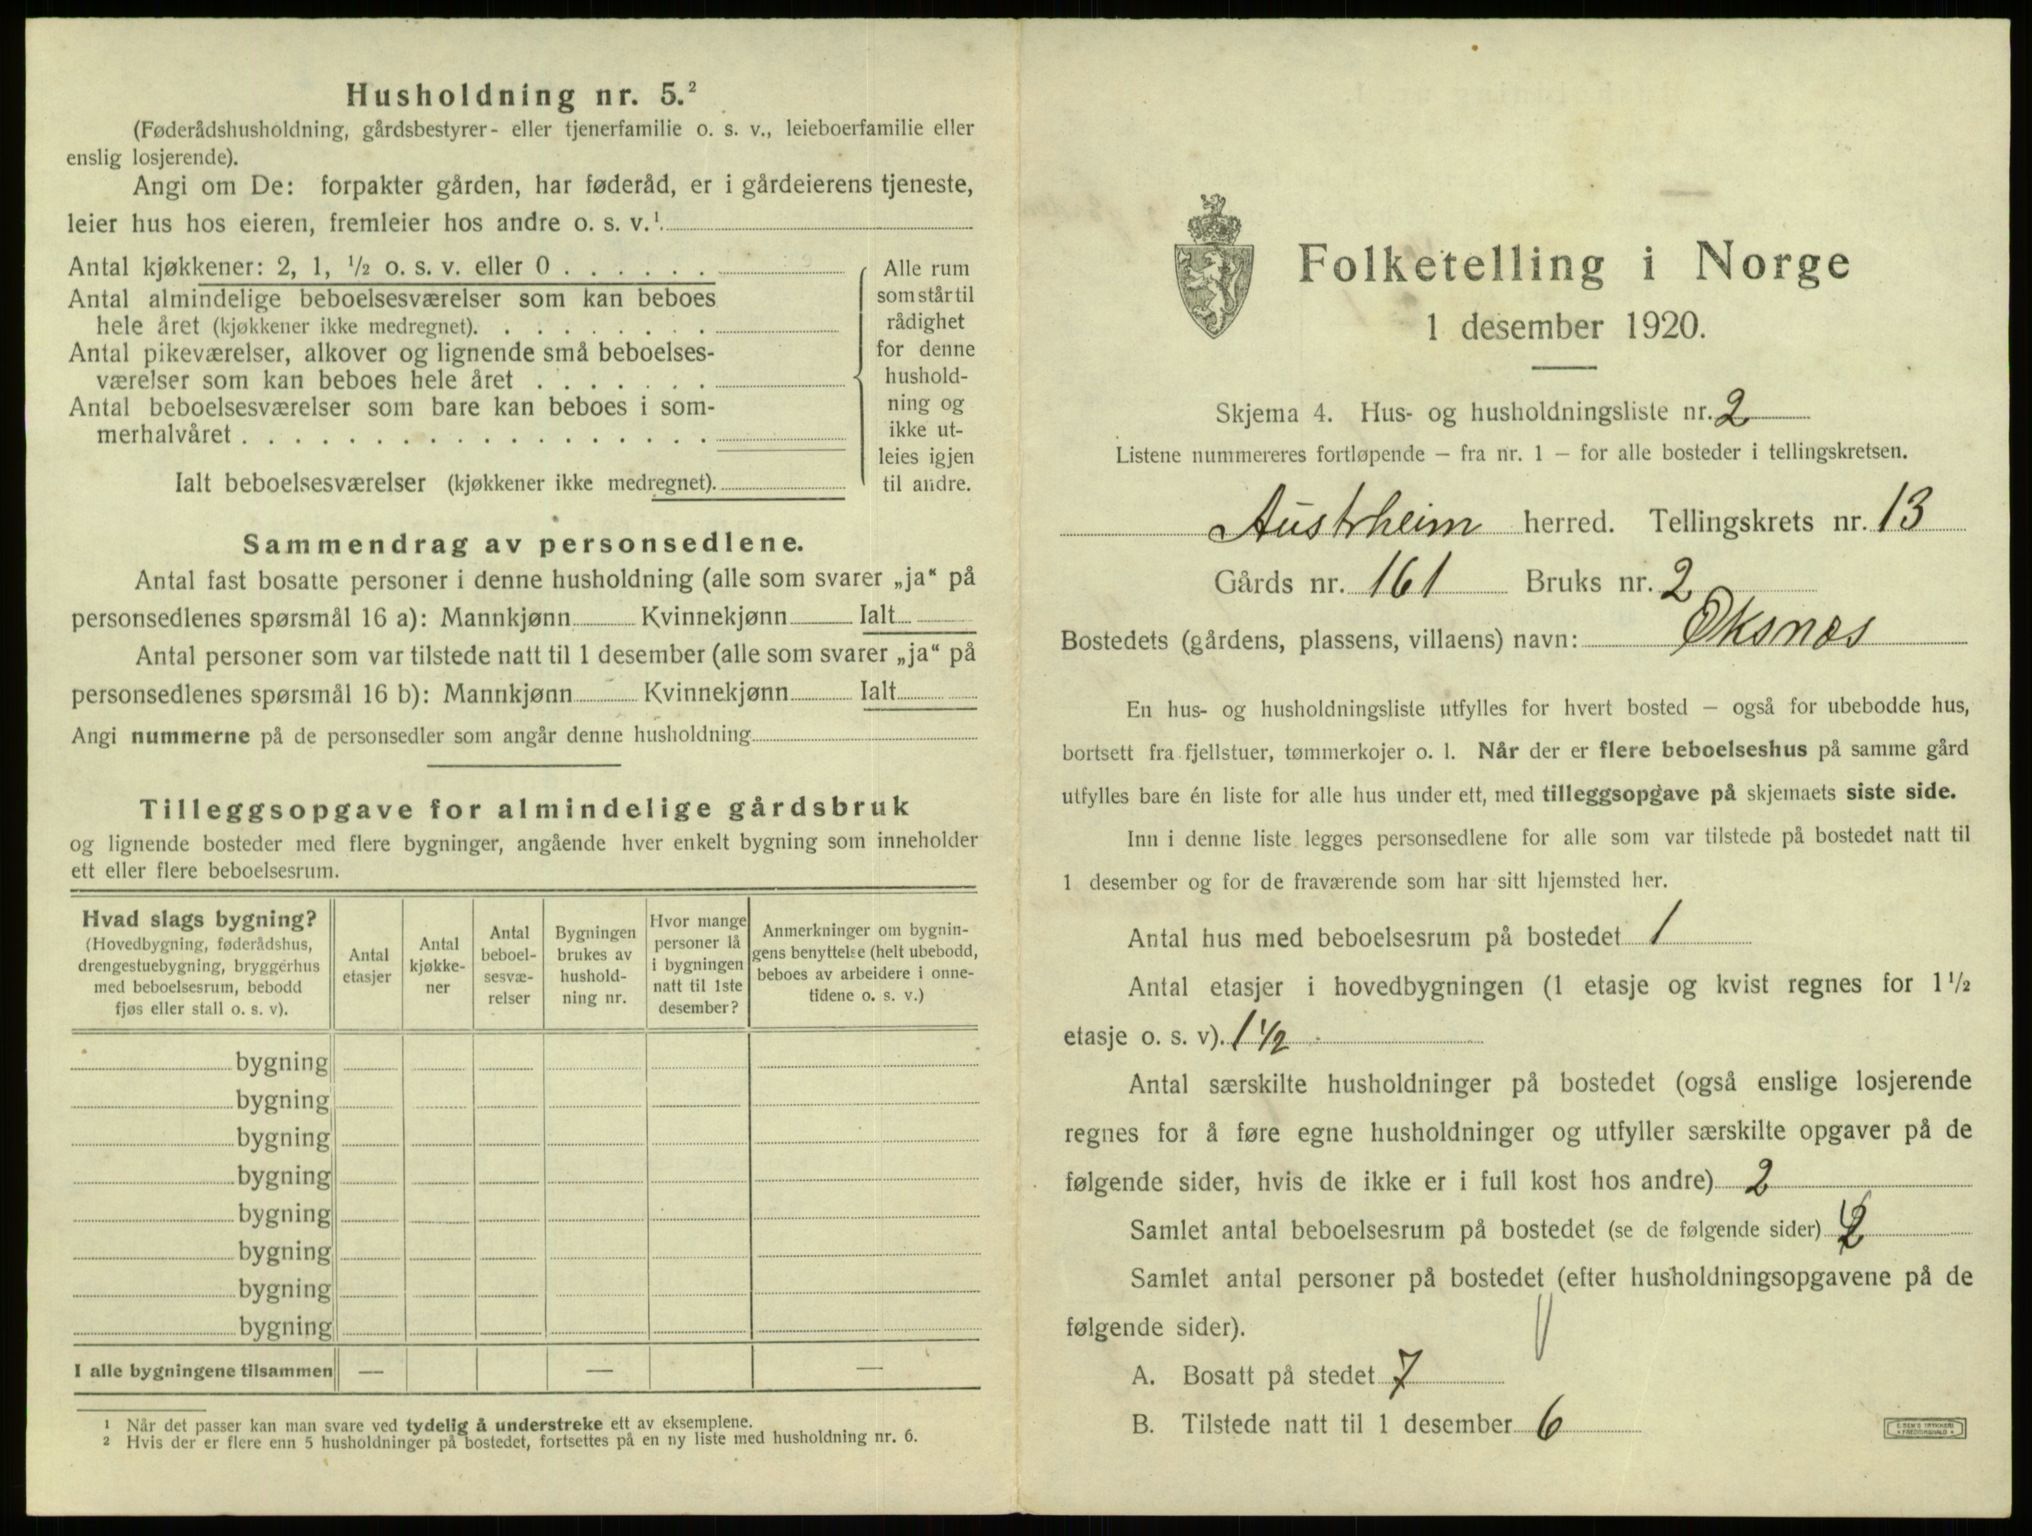 Husholdning nr. 5.²
(Føderådshusholdning, gårdsbestyrer- eller tjenerfamilie o. s. v., leieboerfamilie eller
enslig losjerende).
Angi om De: forpakter gården, har føderåd, er i gårdeierens tjeneste,
leier hus hos eieren, fremleier hos andre o. s. v.¹
Antal kjøkkener: 2, 1, ½ o. s. v. eller 0 . . . . . .
Antal almindelige beboelsesværelser som kan beboes
hele året (kjøkkener ikke medregnet). . . . . . . . .
Antal pikeværelser, alkover og lignende små beboelses-
værelser som kan beboes hele året . . . . . . .
Antal beboelsesværelser som bare kan beboes i som-
merhalvåret . . . . . . . . . . . . . . . . . .
Ialt beboelsesværelser (kjøkkener ikke medregnet).
Alle rum
som står til
rådighet
for denne
hushold-
ning og
ikke ut-
leies igjen
til andre.
Sammendrag av personsedlene.
Antal fast bosatte personer i denne husholdning (alle som svarer „ja“ på
personsedlenes spørsmål 16 a): Mannkjønn Kvinnekjønn Ialt
Antal personer som var tilstede natt til 1 desember (alle som svarer „ja“ på
personsedlenes spørsmål 16 b): Mannkjønn Kvinnekjønn Ialt
Angi nummerne på de personsedler som angår denne husholdning
Tilleggsopgave for almindelige gårdsbruk
og lignende bosteder med flere bygninger, angående hver enkelt bygning som inneholder
ett eller flere beboelsesrum.
Hvad slags bygning?
(Hovedbygning, føderådshus,
drengestuebygning, bryggerhus
med beboelsesrum, bebodd
fjøs eller stall o. s. v).
Antal
etasjer
Antal
kjøkke-
ner
Antal
beboel-
sesvæ-
relser
Bygningen
brukes av
hushold-
ning nr.
Hvor mange
personer lå
i bygningen
natt til 1ste
desember?
Anmerkninger om bygnin-
gens benyttelse (helt ubebodd,
beboes av arbeidere i onne-
tidene o. s. v.)
bygning
bygning
bygning
bygning
bygning
bygning
bygning
bygning
I alle bygningene tilsammen — — —
¹ Når det passer kan man svare ved tydelig å understreke ett av eksemplene.
² Hvis der er flere enn 5 husholdninger på bostedet, fortsettes på en ny liste med husholdning nr. 6.
Folketelling i Norge
1 desember 1920.
Skjema 4. Hus- og husholdningsliste nr. 2
Listene nummereres fortløpende — fra nr. 1 — for alle bosteder i tellingskretsen.
Austrheim herred. Tellingskrets nr. 13
Gårds nr. 161 Bruks nr. 2
Bostedets (gårdens, plassens, villaens) navn: Oksnæs
En hus- og husholdningsliste utfylles for hvert bosted — også for ubebodde hus,
bortsett fra fjellstuer, tømmerkojer o. l. Når der er flere beboelseshus på samme gård
utfylles bare én liste for alle hus under ett, med tilleggsopgave på skjemaets siste side.
Inn i denne liste legges personsedlene for alle som var tilstede på bostedet natt til
1 desember og for de fraværende som har sitt hjemsted her.
Antal hus med beboelsesrum på bostedet 1
Antal etasjer i hovedbygningen (1 etasje og kvist regnes for 1 ½
etasje o. s. v). 1 ½
Antal særskilte husholdninger på bostedet (også enslige losjerende
regnes for å føre egne husholdninger og utfyller særskilte opgaver på de
følgende sider, hvis de ikke er i full kost hos andre) 2
Samlet antal beboelsesrum på bostedet (se de følgende sider)
Samlet antal personer på bostedet (efter husholdningsopgavene på de
følgende sider).
A. Bosatt på stedet 7
B. Tilstede natt til 1 desember 6